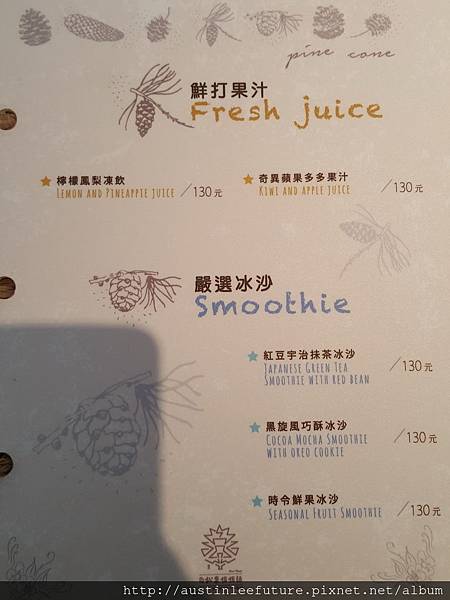 pine cone
鮮打果汁
Fresh juice
檸檬鳳梨凍飲
Lemon and Pineappie juice / 130元
奇異蘋果多多果汁
Kiwi and apple juice / 130元
嚴選冰沙
Smoothie
紅豆宇治抹茶冰沙
Japanese Green Tea / 130元
Smoothie with red bean
黑旋風巧酥冰沙
Cocoa Mocha Smoothie / 130元
with oreo cookie
時令鮮果冰沙
Seasonal Fruit Smoothie / 130元
http://austinleefuture.pixnet.net/album